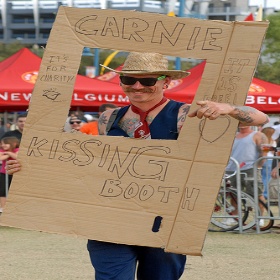 CARNIE
IT'S
FOR
CHARITY
KISSING
BOOTH
NEW BELGIUM
BEL